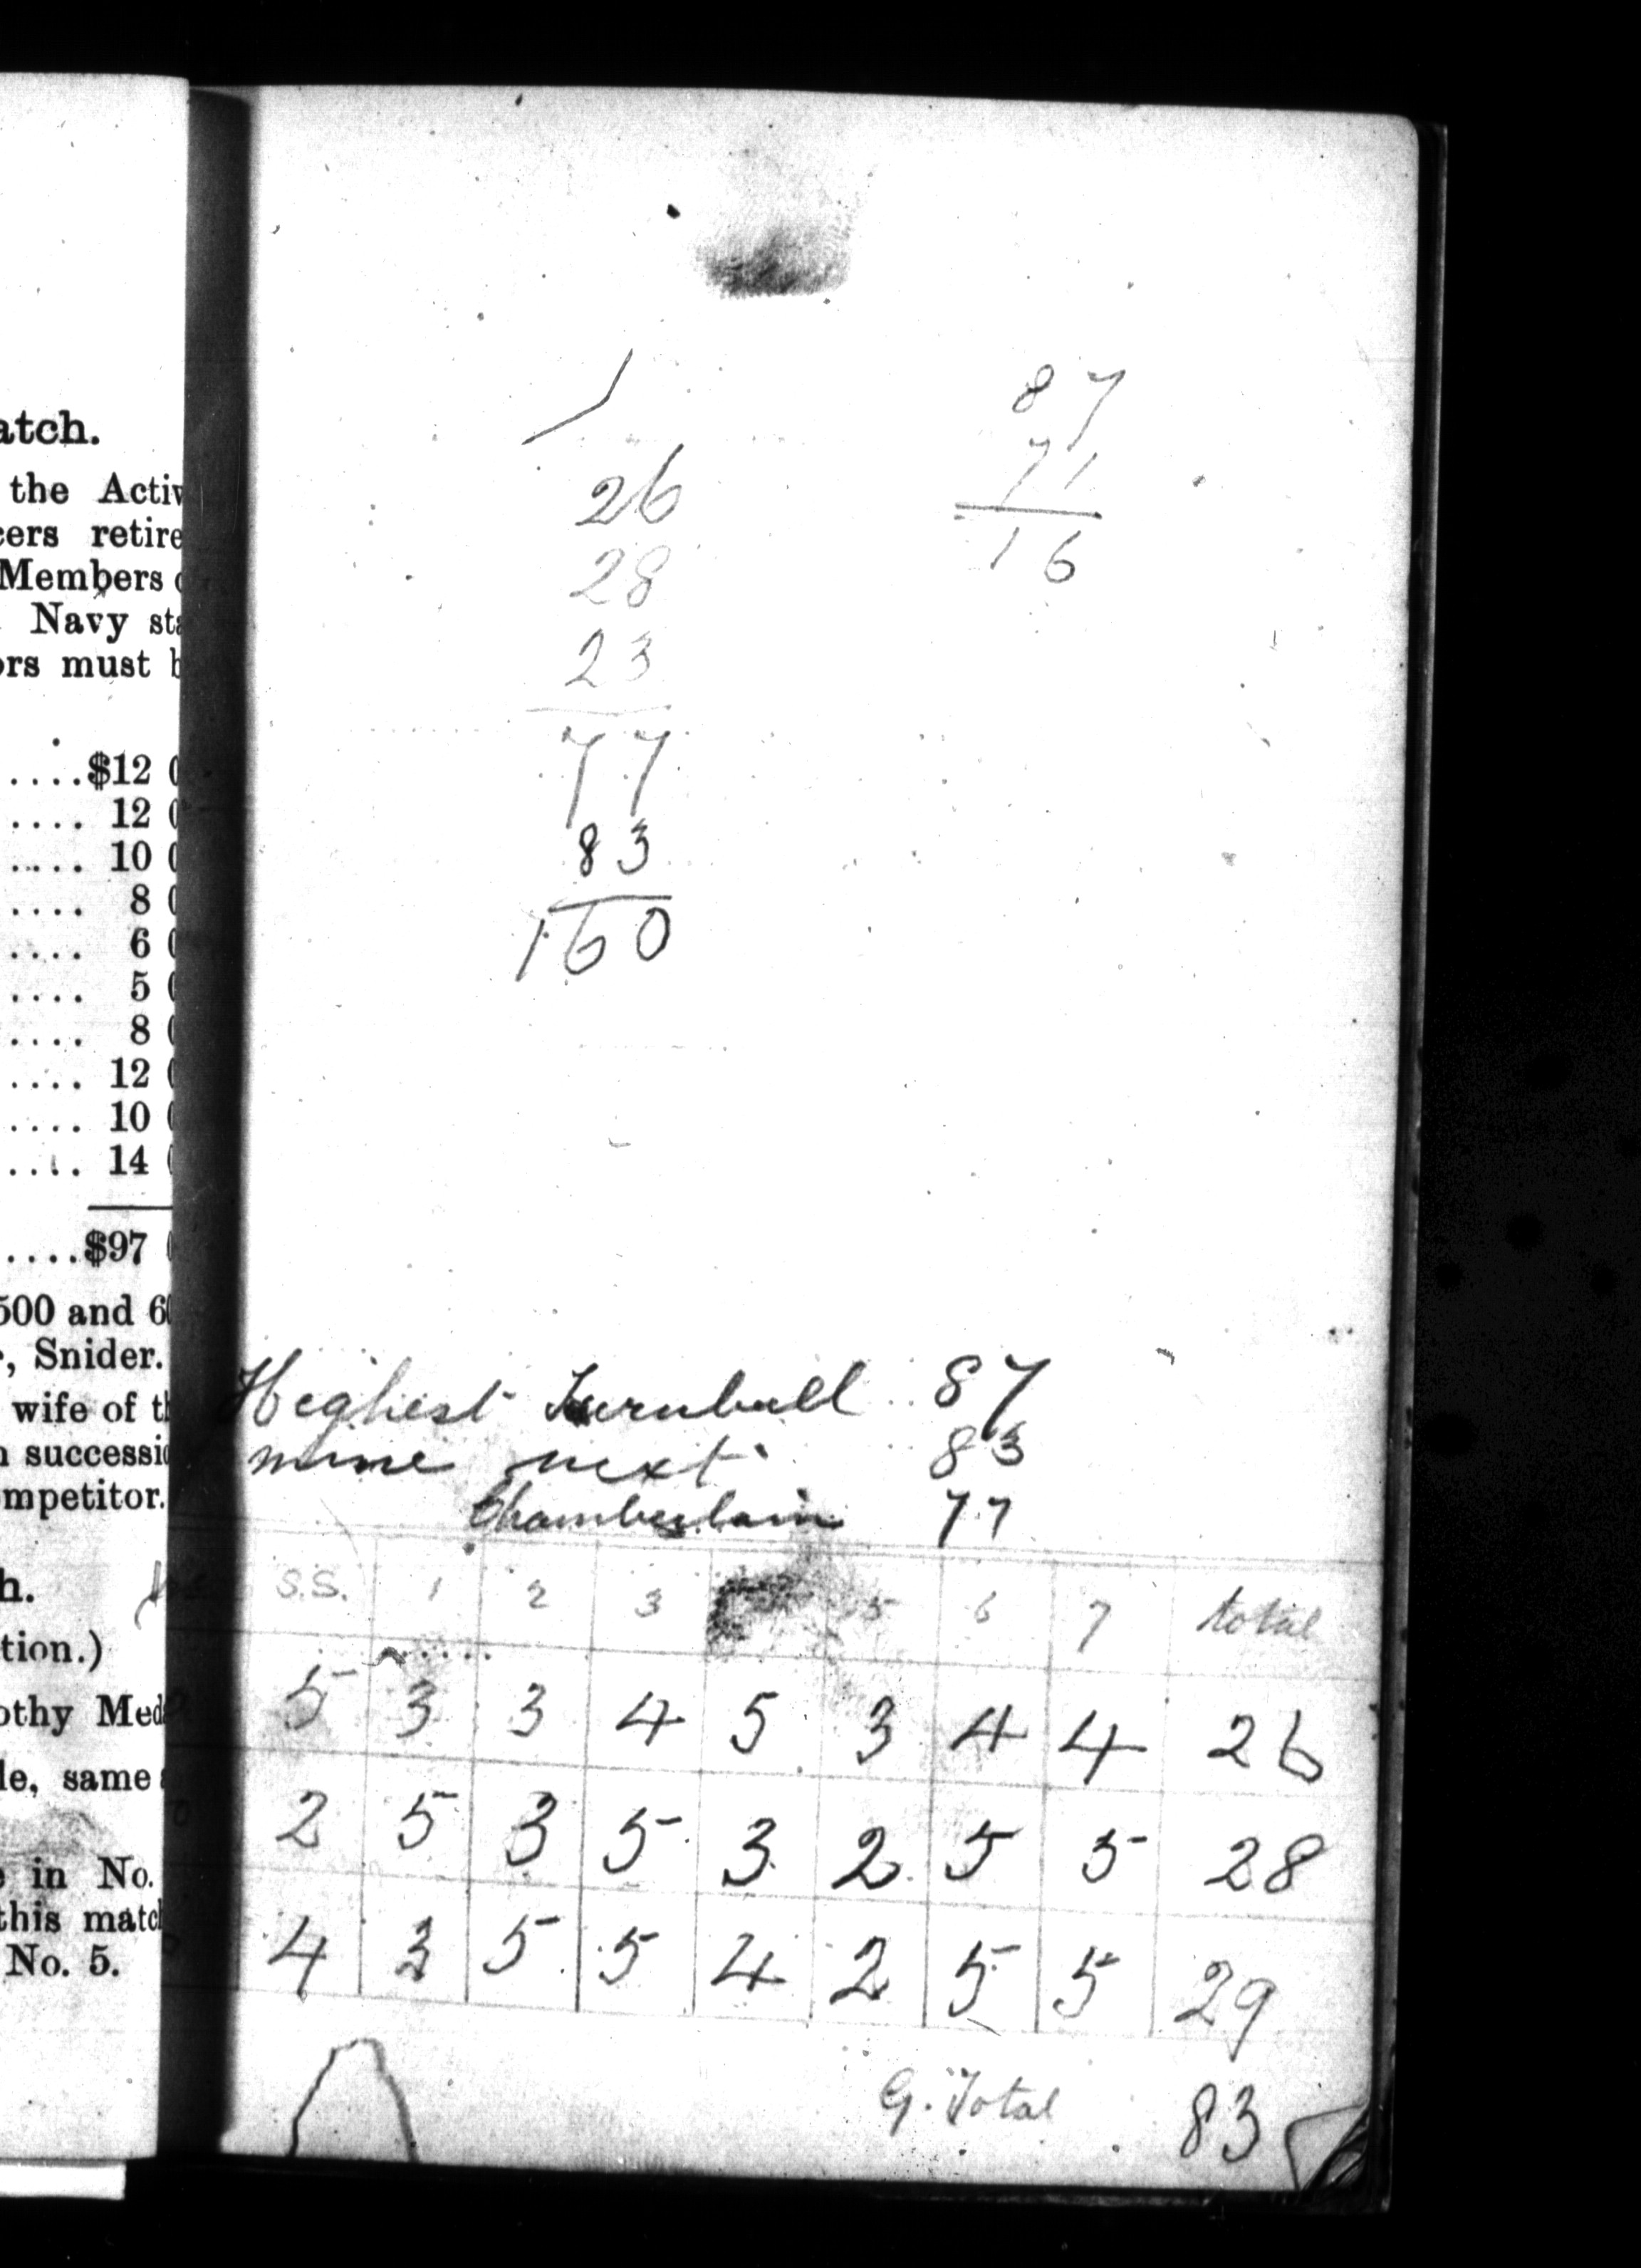 atch.
the Activ
cers retire
Members
Navy sta
ors must b
....$12 0
.... 12 0
.... 10 0
.... 8 0
.... 6 0
.... 5 0
.... 8 0
.... 12 0
.... 10 0
.... 14
....$97
500 and 6
, Snider.
wife of th
n successio
ompetitor.
h.
tion.)
othy Med
le, same
e in No.
this match
No. 5.
26
28
23
77
83
160
87
71
16
Heghest Turnbull 87
mine next 83
Chamberlain 77
S.S. 1 2 3 5 6 7 total
5 3 3 4 5 3 4 4 26
2 5 3 5 3 2 5 5 28
4 3 5 5 4 2 5 5 29
G. Total 83